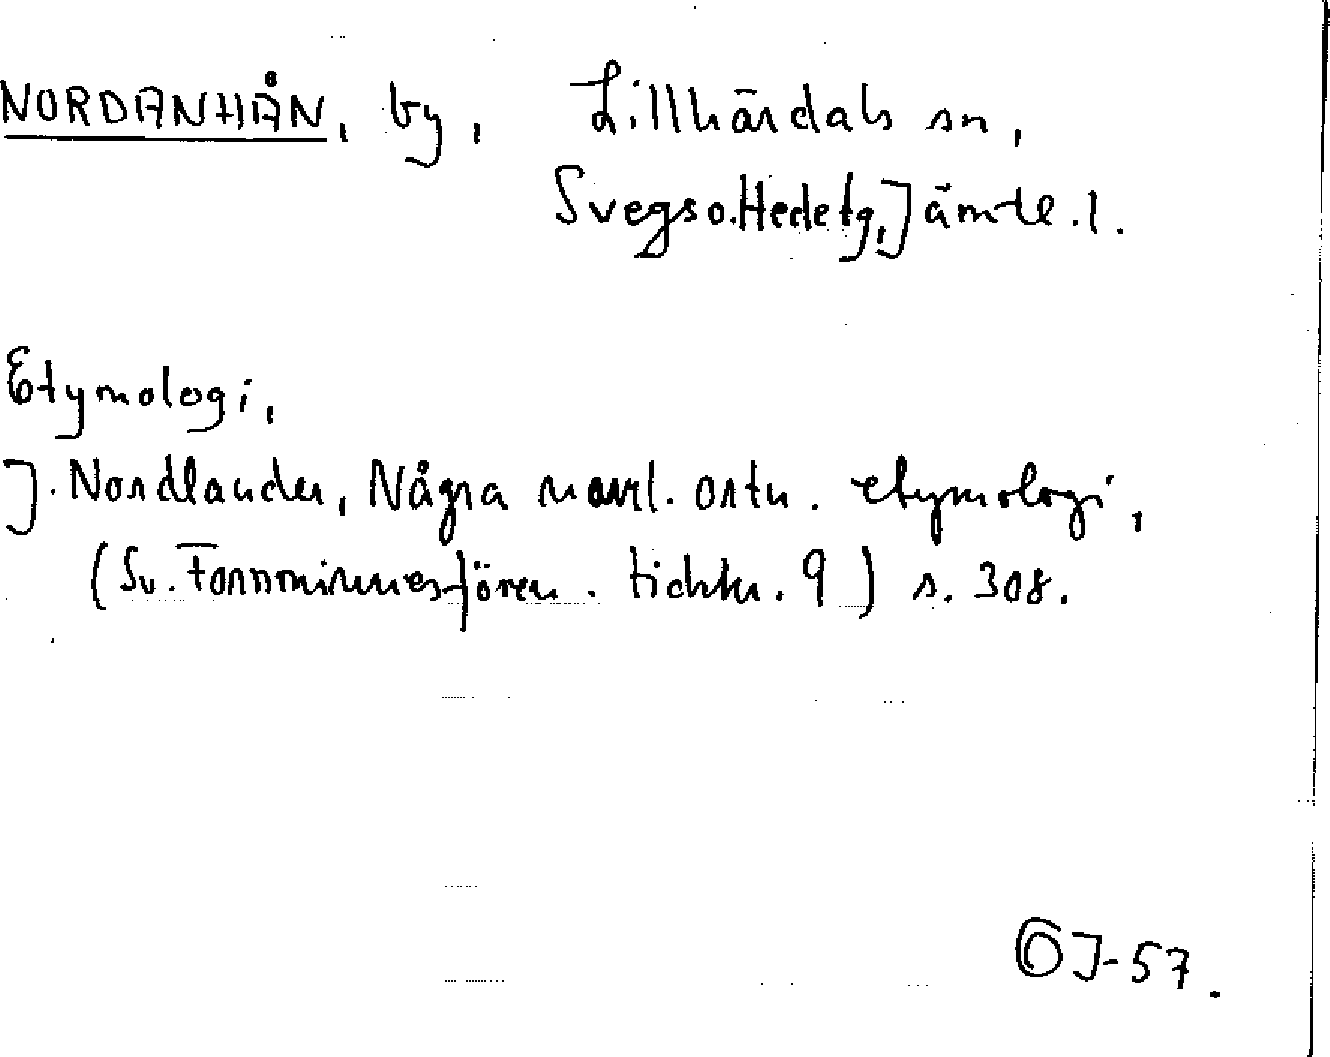 NORDANHÅN, by, Lillhärdals sn,
Svegs o. Hede tg, Jämtl. l.
Etymologi,
J. Nordlander, Några norrl. ortn. etymologi,
(Sv. Fornminnesfören. tidskr. 9) s. 308.
J-57.